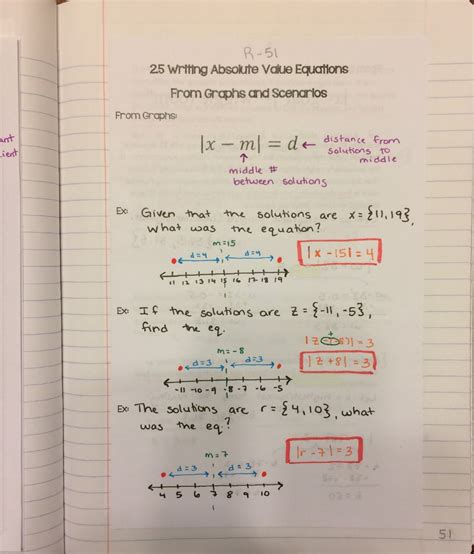 R-51
2.5 Writing Absolute Value Equations
From Graphs and Scenarios
From Graphs:
|x − m| = d ← distance from solutions to middle
↑
middle #
between solutions
Ex: Given that the solutions are x = {11,19},
what was the equation?
m=15
d=4 d=4
|x -15| = 4
11 12 13 14 15 16 17 18 19
Ex: If the solutions are z = {-11, -5},
find the eq.
|z - (-8)| = 3
m = -8
d=3 d=3
|z +8| = 3
-11 -10 -9 -8 -7 -6 -5
Ex: The solutions are r = {4,10}, what
was the eq.?
m = 7
|r -7| = 3
d=3 d=3
4 5 6 7 8 9 10
51